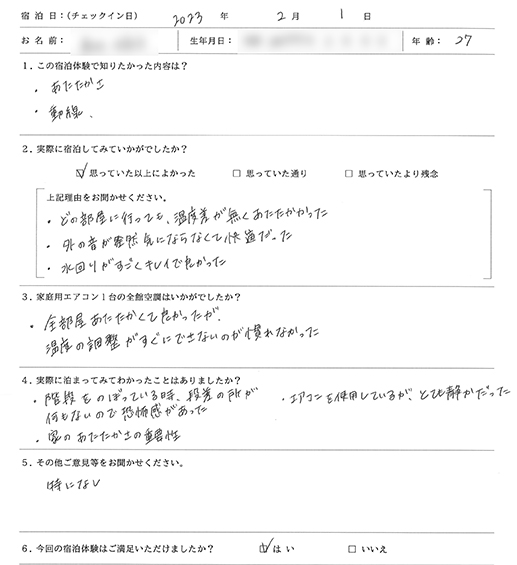 宿 泊 日：（チェックイン日） 2023 年 2 月 1 日
お 名 前： 生年月日： 年 齢： 27
1．この宿泊体験で知りたかった内容は？
・ あたたかさ
・ 動線、
2．実際に宿泊してみていかがでしたか？
☑ 思っていた以上によかった □ 思っていた通り □ 思っていたより残念
上記理由をお聞かせください。
・ どの部屋に行っても、温度差が無くあたたかかった
・ 外の音が全然気にならなくて快適だった
・ 水回りがすごくキレイで良かった
3．家庭用エアコン1台の全館空調はいかがでしたか？
・ 全部屋あたたかくて良かったが、
温度の調整がすぐにできないのが慣れなかった
4．実際に泊まってみてわかったことはありましたか？
・ 階段をのぼっている時、段差の所が
何もないので恐怖感があった
・ 家のあたたかさの重要性
・ エアコンを使用しているが、とても静かだった
5．その他ご意見等をお聞かせください。
特になし
6．今回の宿泊体験はご満足いただけましたか？ ☑ はい □ いいえ